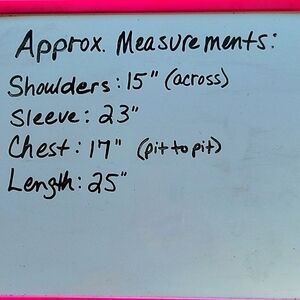 Approx. Measurements:
Shoulders: 15" (across)
Sleeve: 23"
Chest: 17" (pit to pit)
Length: 25"